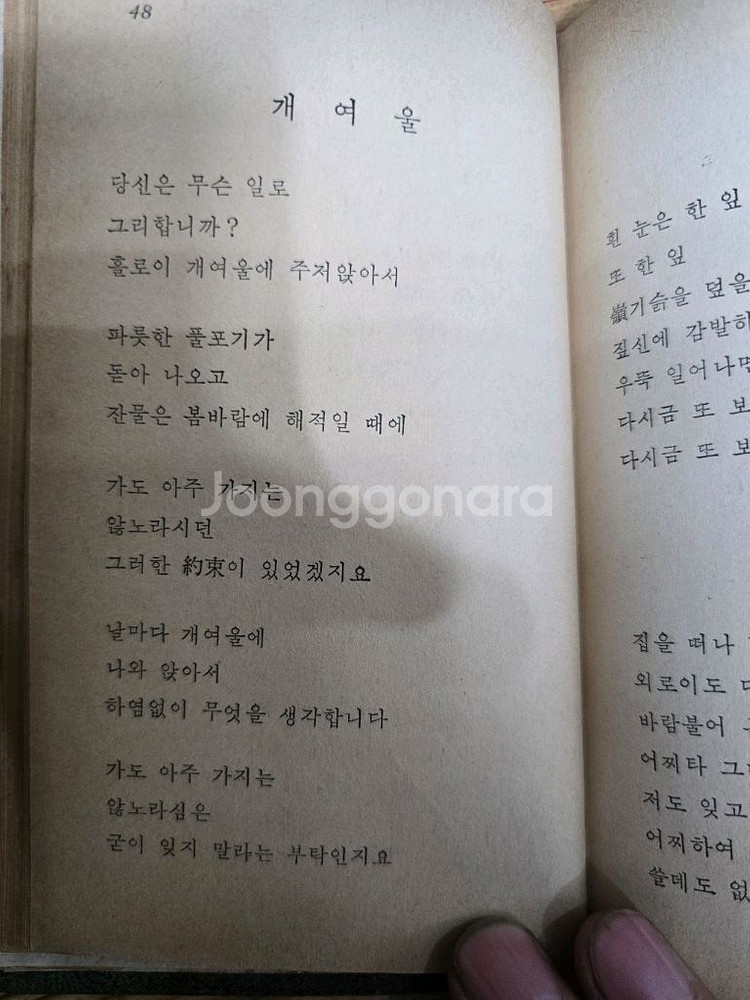 48
개 여 울
당신은 무슨 일로
그리합니까?
홀로이 개여울에 주저앉아서
파릇한 풀포기가
돋아 나오고
잔물은 봄바람에 해적일 때에
가도 아주 가지는
않노라시던
그러한 約束이 있었겠지요
날마다 개여울에
나와 앉아서
하염없이 무엇을 생각합니다
가도 아주 가지는
않노라심은
굳이 잊지 말라는 부탁인지요
Joonggonara
흰 눈은 한 잎
또 한 잎
嶺기슭을 덮을
짚신에 감발하
우뚝 일어나면
다시금 또 보
다시금 또 보
집을 떠나
외로이도
바람불어
어찌타 그
저도 잊고
어찌하여
쓸데도 없